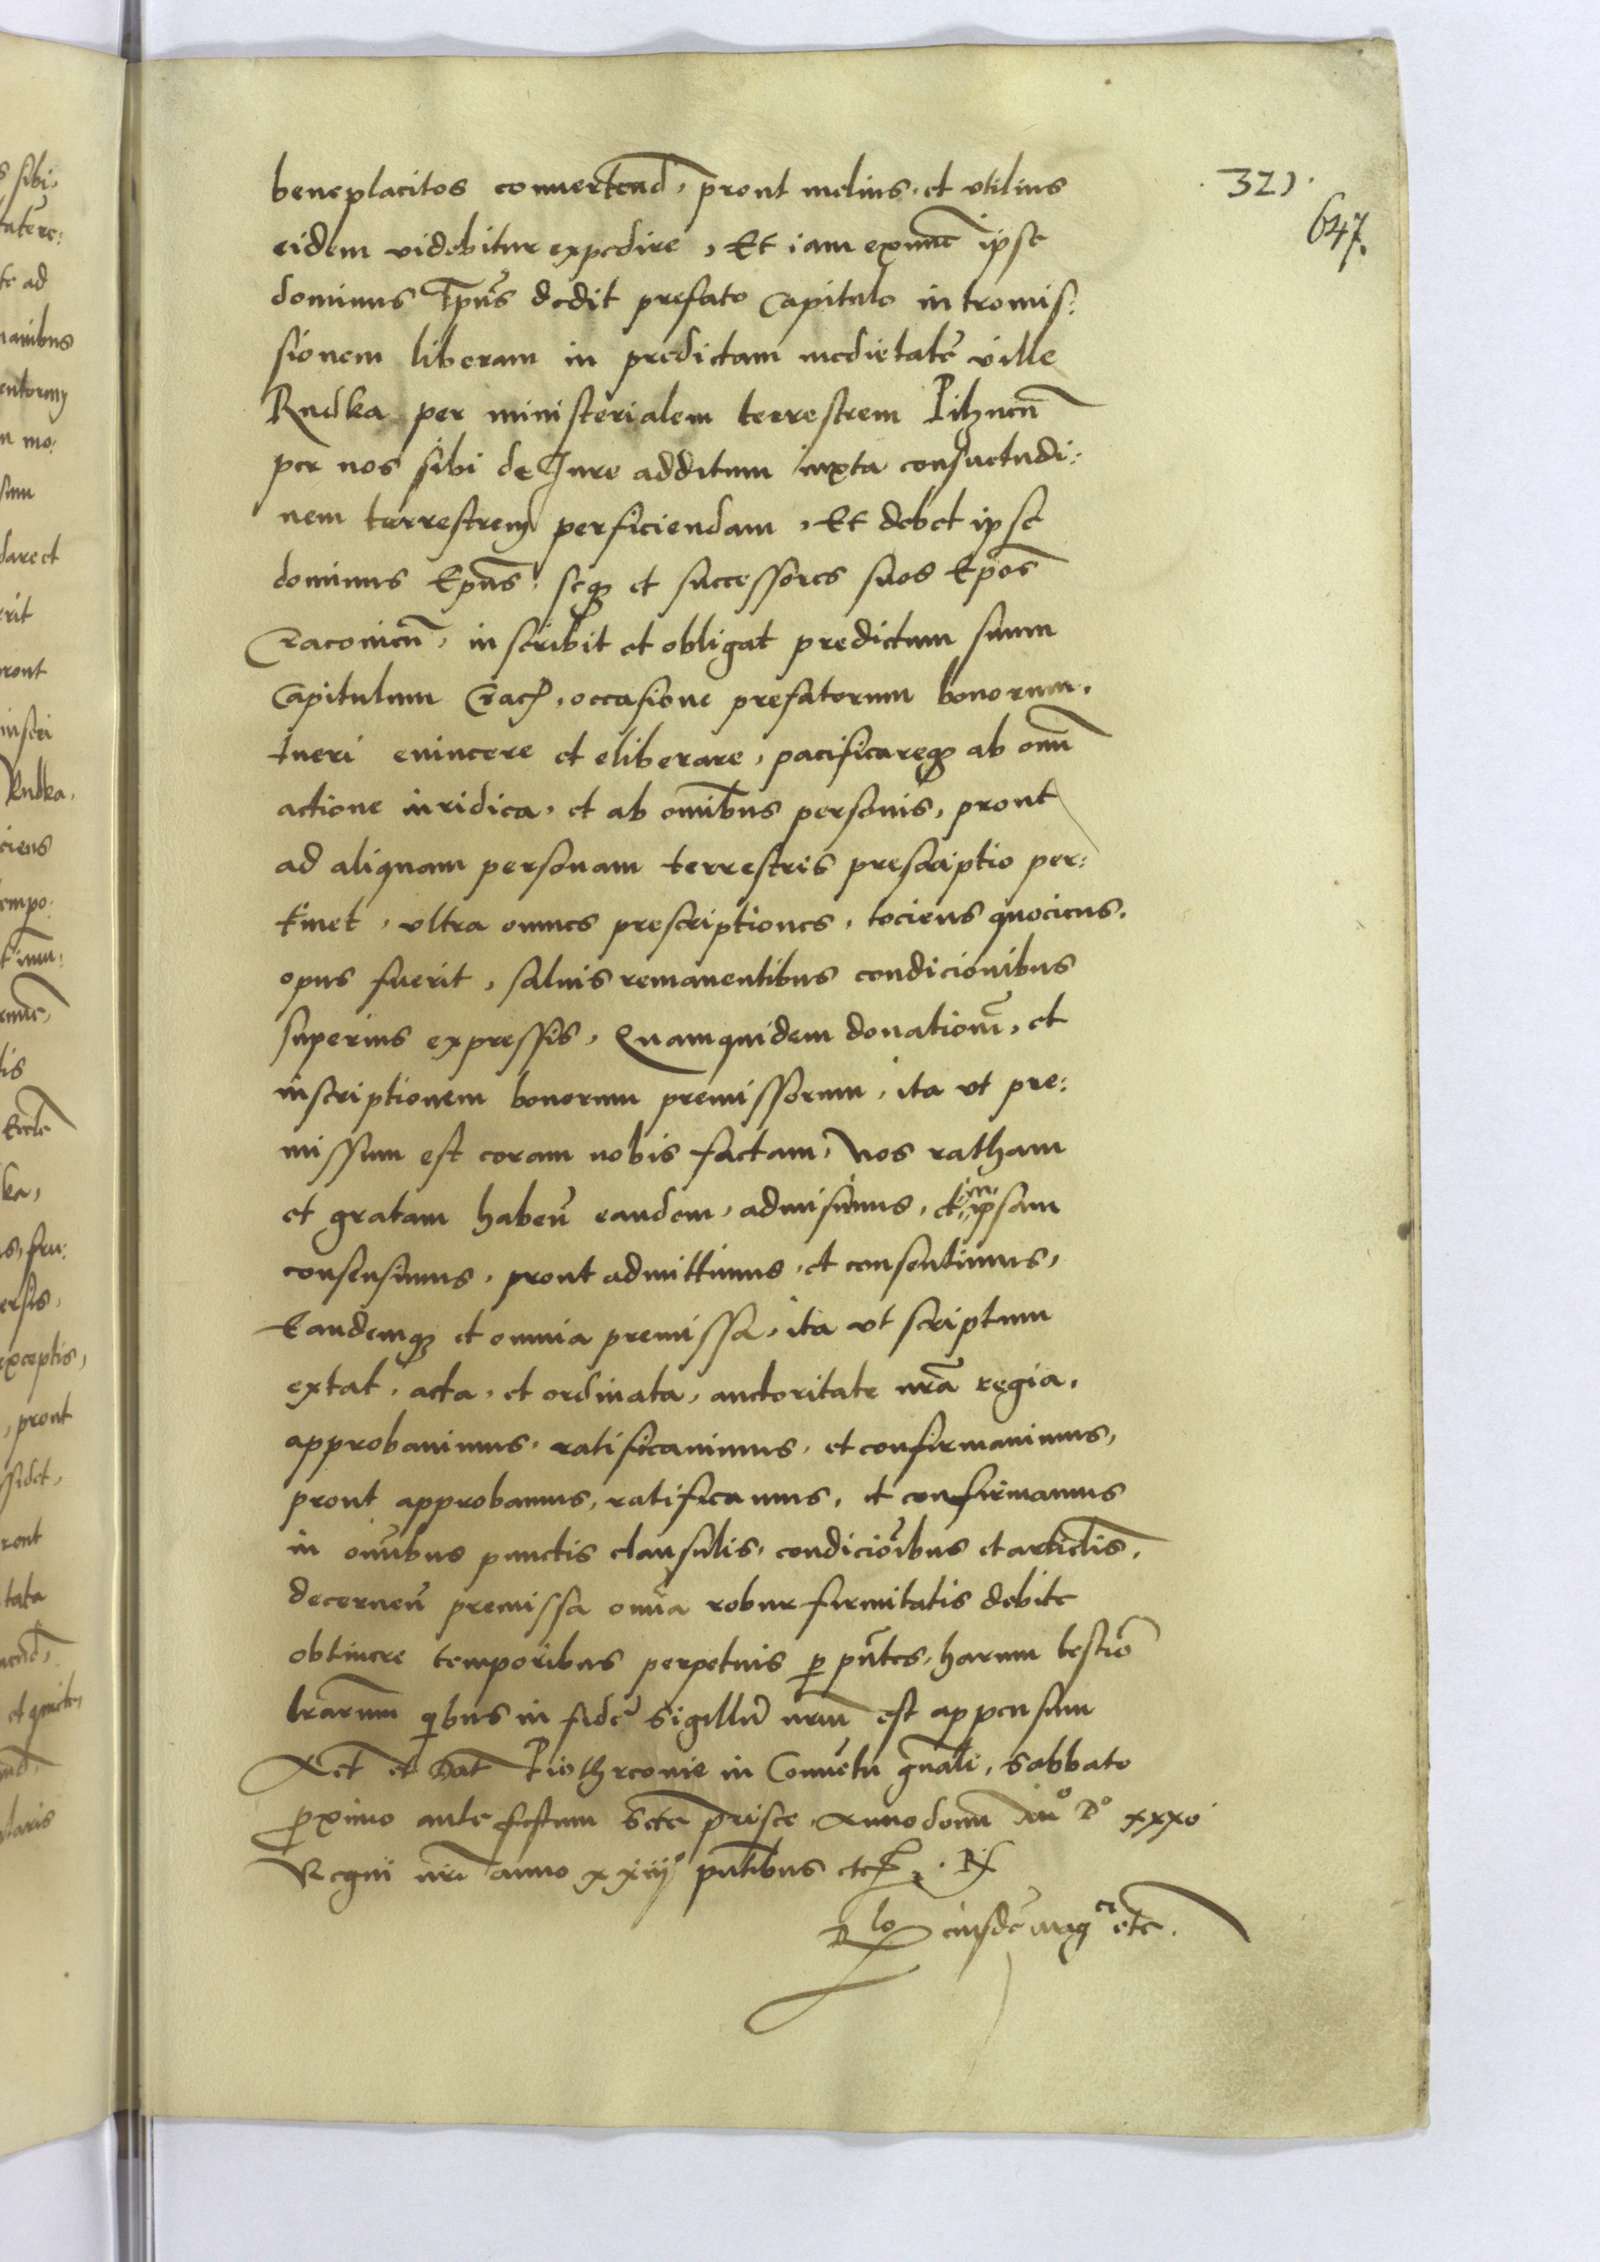 321.
647.
beneplacitos conuertend, prout melius et vtilius
eidem videbitur expedire, Et iam exnunc ipse
dominus Epūs dedit prefato Capitulo intromis:
sionem liberam in predictam medietatē ville
Rudka per ministerialem terrestrem Pilznen̄
per nos sibi de Jure additum iuxta consuetudi:
nem terrestrem perficiendam, Et debet ipse
dominus Epūs, seqʒ et successores suos Epōs
Cracouien̄, inscribit et obligat predictum suum
Capitulum Crac, occasione prefatorum bonorum,
tueri euincere et eliberare, pacificareqʒ ab omī
actione iuridica, et ab omībus personis, prout
ad aliquam personam terrestris prescriptio per:
tinet, vltra omnes prescriptiones, tociens quociens,
opus fuerit, saluis remanentibus condicionibus
superius expressis, Quamquidem donationē, et
inscriptionem bonorum premissorum, ita vt pre:
missum est coram nobis factam, Nos ratham
et gratam haben̄ eandem, admisimus, et in ipsam
consensimus, prout admittimus, et consentimus,
Eandemqʒ et omnia premissa, ita vt scriptum
extat, acta, et ordinata, auctoritate nr̄a regia,
approbauimus, ratificauimus, et confirmauimus,
prout approbamus, ratificamus, et confirmamus
in omībus punctis clausulis, condiciōibus et articlis,
decernen̄ premissa omīa robur firmitatis debite
obtinere temporibus perpetuis p pn̄tes, harum testīo
lr̄arum qibus in fidē sigillū nrm̄ est appensum
Act et Dat Piothrcouie in Conuētu gn̄ali, Sabbato
proximo ante festum Scte Prisce Anno domī Mo Do xxxo
Regni nrī anno xxiiijo pn̄tibus etc
Rlo eiusdē mag ci etc.